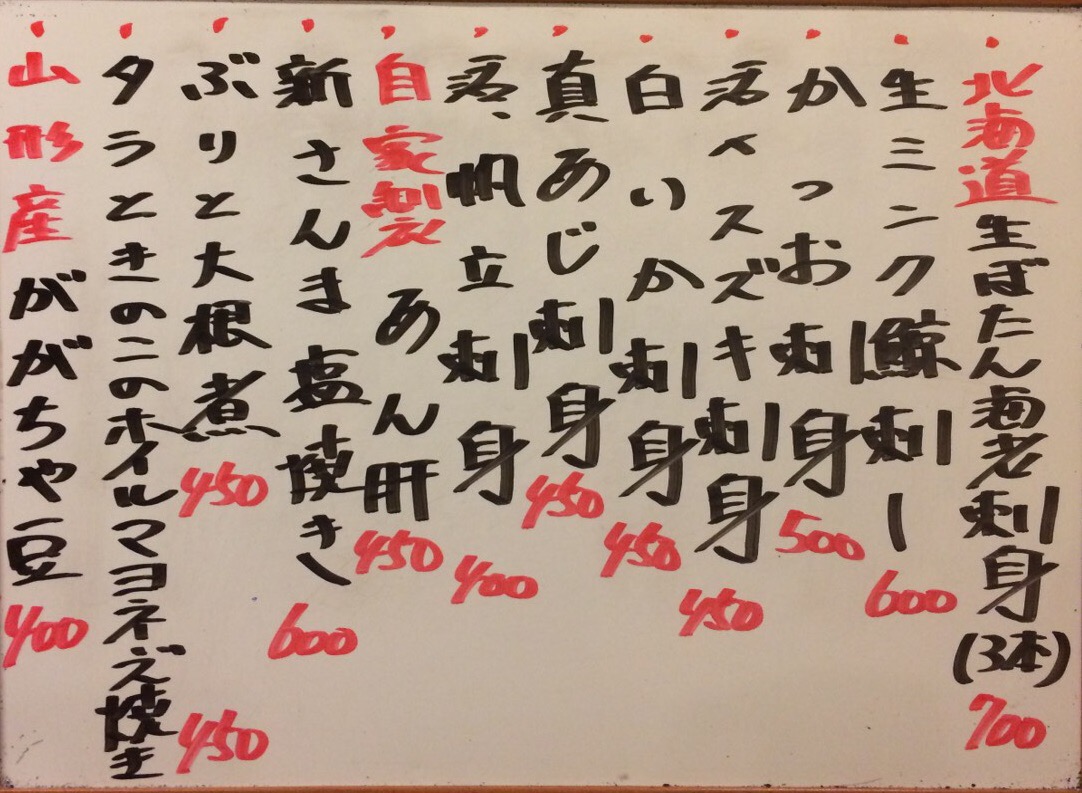 北海道生ぼたん海老刺身(3本) 700
生ミンク鯨刺し 600
かつお刺身 500
活〆スズキ刺身 450
白いか刺身 450
真あじ刺身 450
活帆立刺身 400
自家製あん肝 450
新さんま塩焼き 600
ぶりと大根煮 450
タラときのこのホイルマヨネズ焼き 450
山形産ががちゃ豆 400